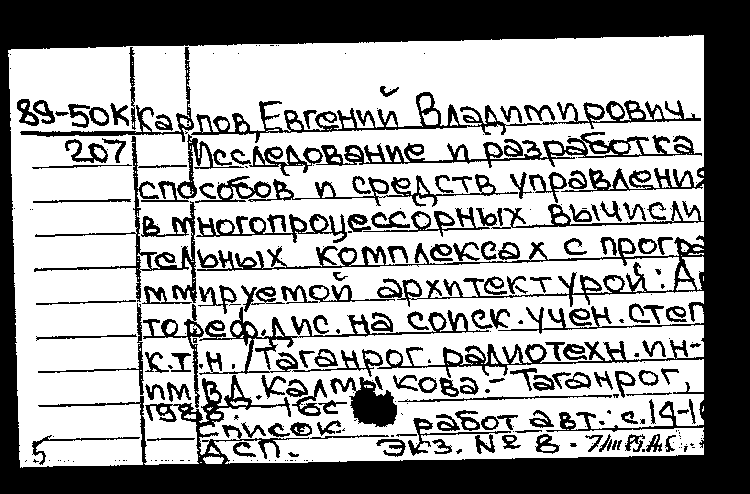 89-50к Карпов, Евгений Владимирович.
207 Исследование и разработка
способов и средств управления
в многопроцессорных вычисли
тельных комплексах с програ
ммируемой архитектурой: Ав
тореф. дис. на соиск. учен. степ
к.т.н. / Таганрог. радиотехн. ин-
им. В.Д. Калмыкова. - Таганрог,
1988. - 16с
Список работ авт.: с. 14-16
5 ДСП. Экз. № 8.